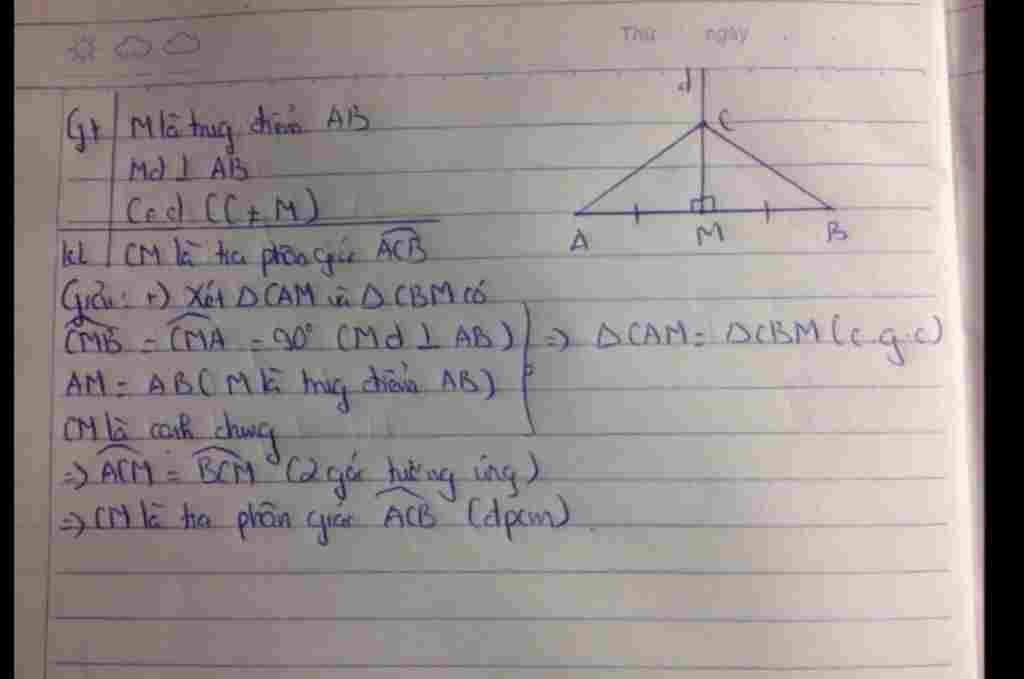 Thứ ngày
Gt M là trug điểm AB
Md ⊥ AB
C ∈ d (C ≠ M)
kl CM là tia phân giác ACB
Giải: +) Xét ΔCAM và ΔCBM có
CMB = CMA = 90° (Md ⊥ AB)
AM = AB (M là trug điểm AB)
CM là cạnh chung
⇒ ΔCAM = ΔCBM (c.g.c)
⇒ ACM = BCM (2 góc tương ứng)
⇒ CM là tia phân giác ACB (đpcm).
d
C
A
M
B